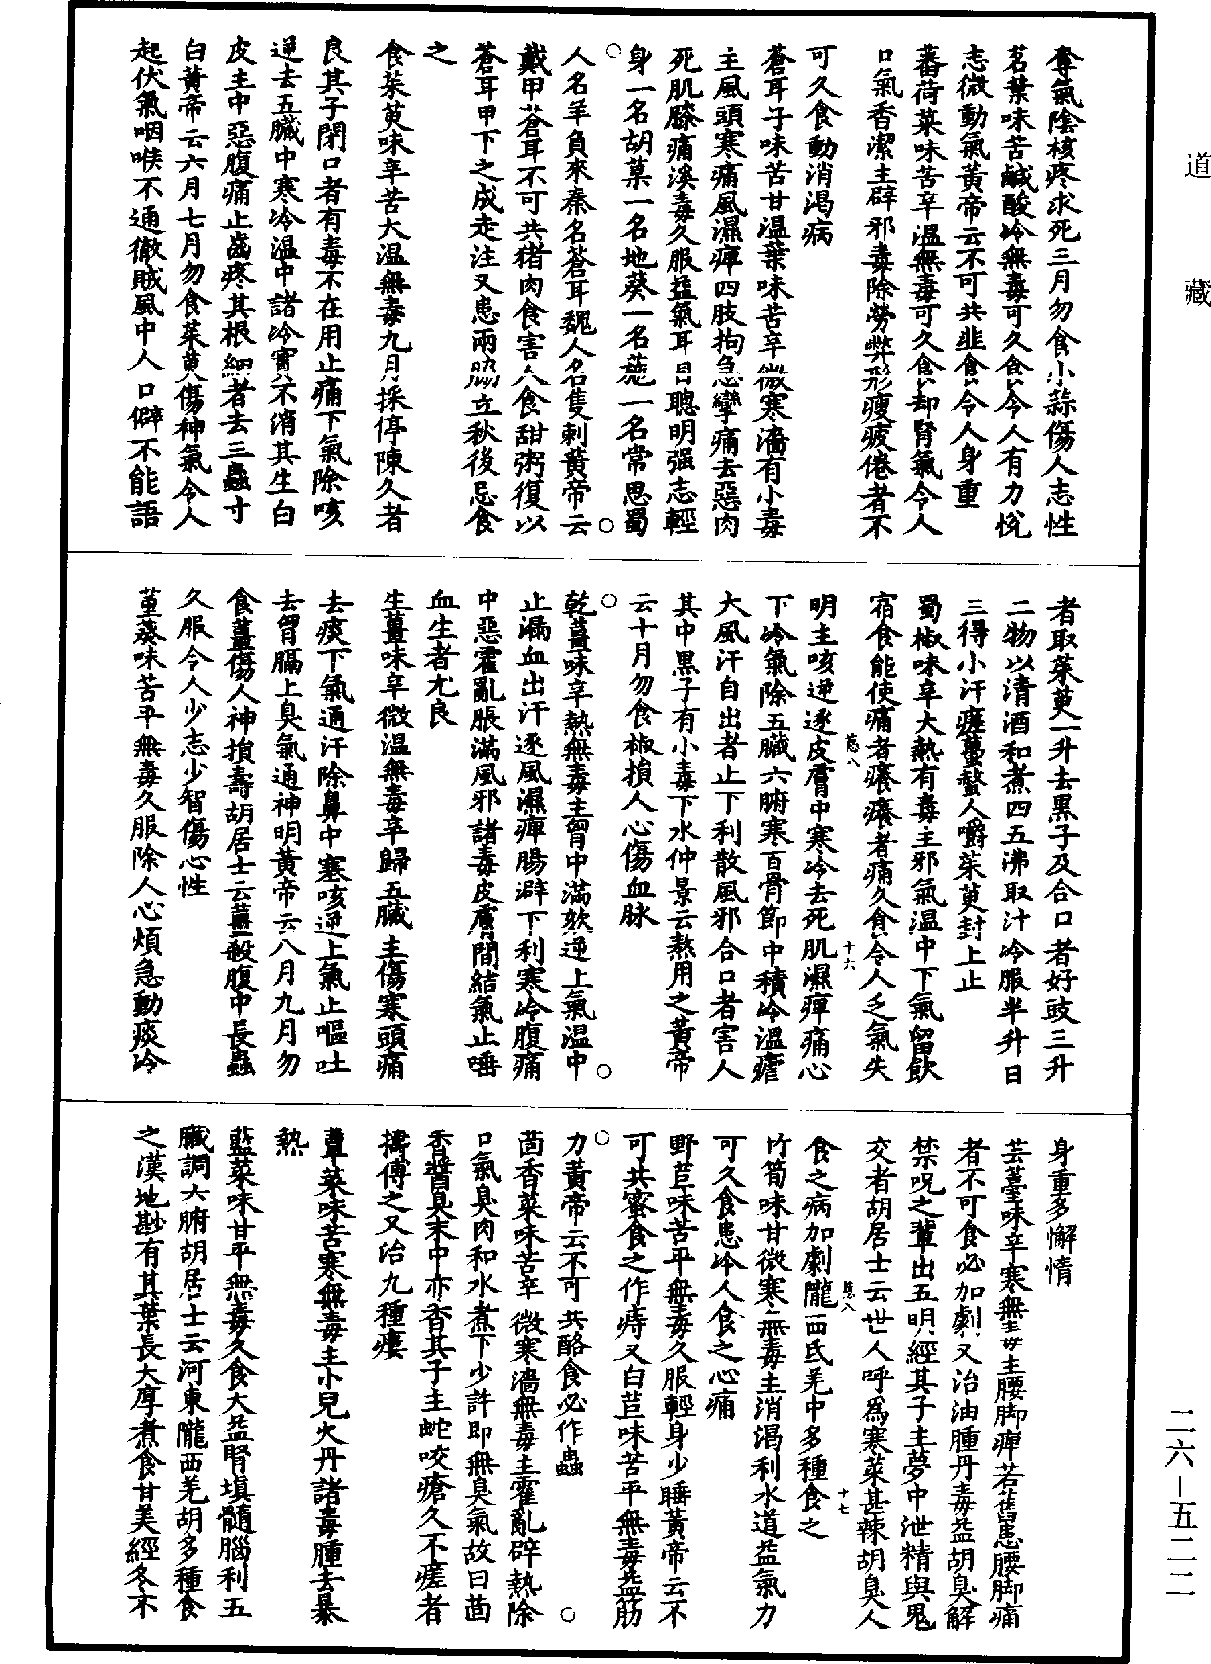 道藏
奪氣陰核疼求死三月勿食小蒜傷人志性
茗葉味苦鹹酸冷無毒可久食令人有力悅
志微動氣黃帝云不可共韭食令人身重
蕃荷菜味苦辛溫無毒可久食却腎氣令人
口氣香潔主辟邪毒除勞弊形瘦疲倦者不
可久食動消渴病
蒼耳子味苦甘溫葉味苦辛微寒濇有小毒
主風頭寒痛風濕痺四肢拘急攣痛去惡肉
死肌膝痛溪毒久服益氣耳目聰明强志輕
身一名胡菜一名地葵一名葹一名常思蜀
人名羊負來秦名蒼耳魏人名隻刺黃帝云
戴甲蒼耳不可共猪肉食害人食甜粥復以
蒼耳甲下之成走注又患兩脇立秋後忌食
之
食茱萸味辛苦大溫無毒九月採停陳久者
良其子閉口者有毒不在用止痛下氣除咳
逆去五臟中寒冷溫中諸冷實不消其生白
皮主中惡腹痛止齒疼其根細者去三蟲寸
白黃帝云六月七月勿食茱萸傷神氣令人
起伏氣咽喉不通徹賊風中人口僻不能語
者取茱萸一升去黑子及合口者好豉三升
二物以清酒和煮四五沸取汁冷服半升日
三得小汗瘥蠆螫人嚼茱萸封上止
蜀椒味辛大熱有毒主邪氣溫中下氣留飲
宿食能使痛者癢癢者痛久食令人乏氣失
明主咳逆逐皮膚中寒冷去死肌濕痺痛心
下冷氣除五臟六腑寒百骨節中積冷溫瘧
大風汗自出者止下利散風邪合口者害人
其中黑子有小毒下水仲景云熬用之黃帝
云十月勿食椒損人心傷血脉
乾薑味辛熱無毒主胷中滿欬逆上氣溫中
止漏血出汗逐風濕痺腸澼下利寒冷腹痛
中惡霍亂脹滿風邪諸毒皮膚間結氣止唾
血生者尤良
生薑味辛微溫無毒辛歸五臟主傷寒頭痛
去痰下氣通汗除鼻中塞咳逆上氣止嘔吐
去胷膈上臭氣通神明黃帝云八月九月勿
食薑傷人神損壽胡居士云薑殺腹中長蟲
久服令人少志少智傷心性
堇葵味苦平無毒久服除人心煩急動痰冷
身重多懈惰
芸薹味辛寒無毒主腰脚痺若舊患腰脚痛
者不可食必加劇又治油腫丹毒益胡臭解
禁呪之輩出五明經其子主夢中泄精與鬼
交者胡居士云世人呼爲寒菜甚辣胡臭人
食之病加劇隴西氐羌中多種食之
竹筍味甘微寒無毒主消渴利水道益氣力
可久食患冷人食之心痛
野苣味苦平無毒久服輕身少睡黃帝云不
可共蜜食之作痔又白苣味苦平無毒益筋
力黃帝云不可共酪食必作蟲
茴香菜味苦辛微寒濇無毒主霍亂辟熱除
口氣臭肉和水煮下少許即無臭氣故曰茴
香醬臭末中亦香其子主蛇咬瘡久不瘥者
擣傅之又治九種瘻
蕈菜味苦寒無毒主小兒火丹諸毒腫去暴
熱
藍菜味甘平無毒久食大益腎填髓腦利五
臟調六腑胡居士云河東隴西羌胡多種食
之漢地尠有其葉長大厚煮食甘美經冬不
慈八
十六
慈八
十七
二六—五二二